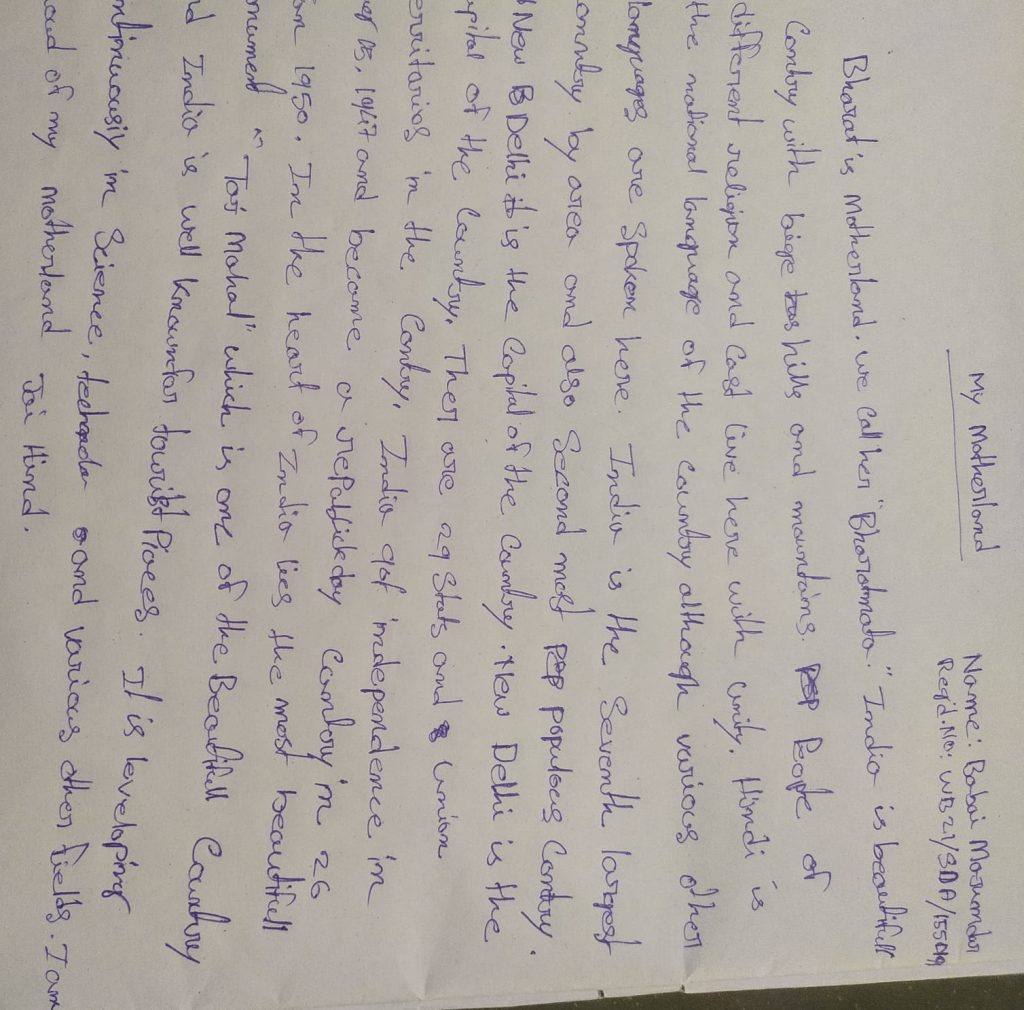 My Motherland
Name: Babai Mazumdar
Reg'd. No: WB21/SDA/155019
Bharat is Motherland. we call her "Bharatmata." India is beautifull
Contry with bige hills and mountains. People of
different religion and cast live here with unity. Hindi is
the national language of the country although various other
languages are spoken here. India is the Seventh largest
ountry by area and also Second most populous Contry.
New Delhi it is the Capital of the Country. New Delhi is the
pital of the Country. Ther are 29 Stats and Union
erritaries in the Contry, India got independence in
15, 1947 and become a republick day Contry in 26
an 1950. In the heart of India lies the most beautifull
onument "Taj Mahal" which is one of the Beautifull Country
d India is well known for tourist Places. It is leveloping
ntinuously in Science, and various other fields. I am
oud of my motherland Jai Hind.